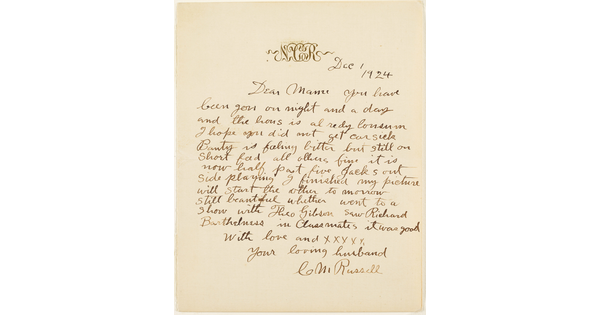 NCR
Dec 1
1924
Dear Mame you have
been gon on night and a day
and the hous is al redy lonsum
I hope you did not get car sick
Banty is feeling better but still on
short feed all others fine it is
now half past five Jack's out
side playing I finished my picture
will start the other to morrow
still beautiful whether went to a
show with Theo Gibson saw Richard
Barthelness in Classmates it was good
With love and XXXXX
Your loving husband
C M Russell